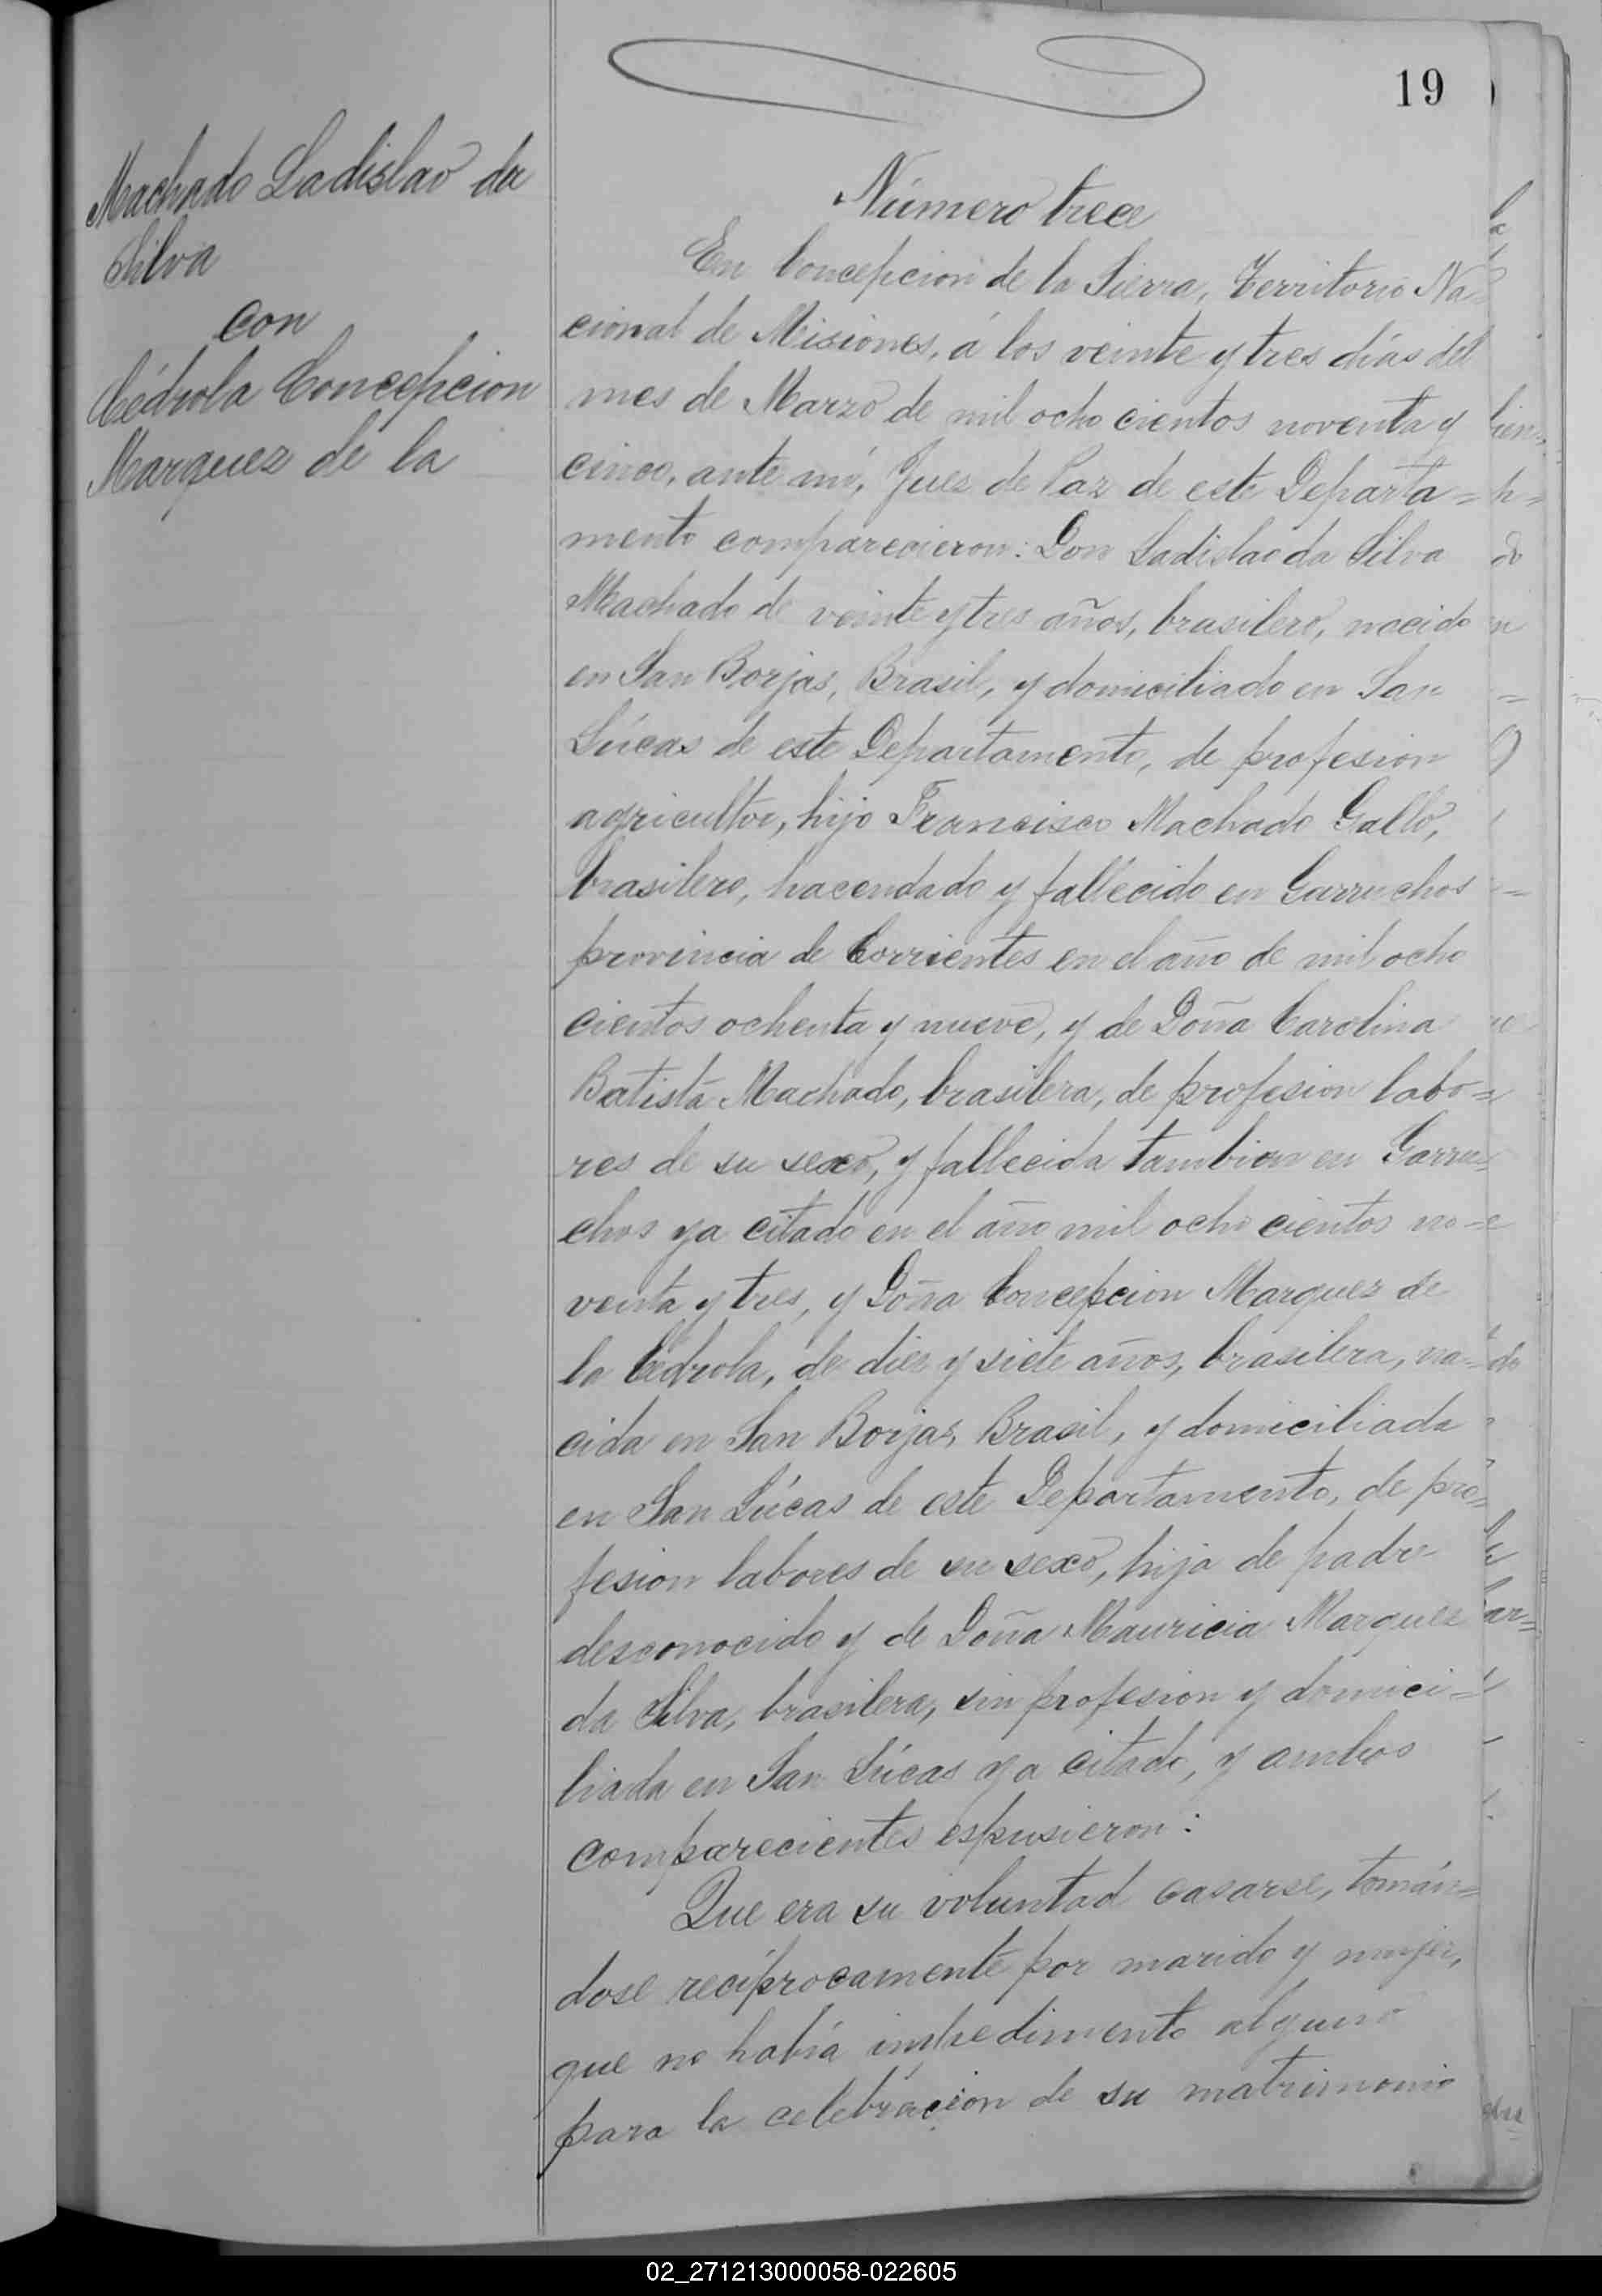 19
Machado Ladislao da
Silva
con
Cédrola Concepcion
Marquez de la
Número trece
En Concepcion de la Sierra, Territorio Na=
cional de Misiones, á los veinte y tres días del
mes de Marzo de mil ocho cientos noventa y
cinco, ante mí, Juez de Paz de este Departa=
mento comparecieron: Don Ladislao da Silva
Machado de veinte y tres años, brasilero, nacido
en San Borjas, Brasil, y domiciliado en San
Lúcas de este Departamento, de profesion
agricultor, hijo Francisco Machado Gallo,
brasilero, hacendado y fallecido en Garruchos
provincia de Corrientes en el año de mil ocho
cientos ochenta y nueve, y de Doña Carolina
Batista Machado, brasilera, de profesion labo=
res de su sexo, y fallecida tambien en Garru=
chos ya citado en el año mil ocho cientos no=
venta y tres, y Doña Concepcion Marquez de
la Cédrola, de diez y siete años, brasilera, na=
cida en San Borjas, Brasil, y domiciliada
en San Lúcas de este Departamento, de pro=
fesion labores de su sexo, hija de padre
desconocido y de Doña Mauricia Marquez
da Silva, brasilera, sin profesion y domici=
liada en San Lúcas ya citado, y ambos
comparecientes espusieron:
Que era su voluntad casarse, tomán=
dose recíprocamente por marido y mujer,
que no había impedimento alguno
para la celebracion de su matrimonio
02_271213000058-022605